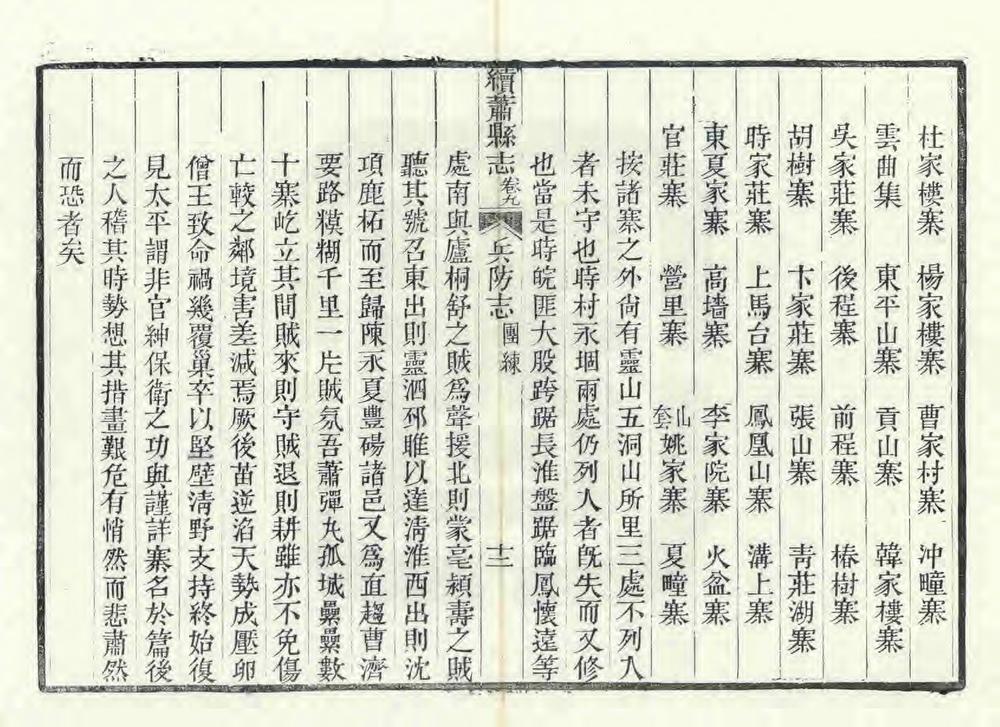 杜家樓寨 楊家樓寨 曹家村寨 沖疃寨
雲曲集 東平山寨 貢山寨 韓家樓寨
吳家莊寨 後程寨 前程寨 椿樹寨
胡樹寨 卞家莊寨 張山寨 青莊湖寨
時家莊寨 上馬台寨 鳳凰山寨 溝上寨
東夏家寨 高墻寨 李家院寨 火盆寨
官莊寨 營里寨 山套姚家寨 夏疃寨
按諸寨之外尙有靈山五洞山所里三處不列入
者未守也時村永堌兩處仍列入者旣失而又修
也當是時皖匪大股跨踞長淮盤踞臨鳳懷遠等
續蕭縣志 卷九 兵防志 團練 十二
處南與廬桐舒之賊爲聲援北則蒙亳潁壽之賊
聽其號召東出則靈泗邳睢以達淸淮西出則沈
項鹿柘而至歸陳永夏豐碭諸邑又爲直趨曹濟
要路糢糊千里一片賊氛吾蕭彈丸孤城纍纍數
十寨屹立其間賊來則守賊退則耕雖亦不免傷
亡較之鄰境害差減焉厥後苗逆滔天勢成壓卵
僧王致命禍幾覆巢卒以堅壁淸野支持終始復
見太平謂非官紳保衛之功與謹詳寨名於篇後
之人稽其時勢想其措畫艱危有悄然而悲肅然
而恐者矣